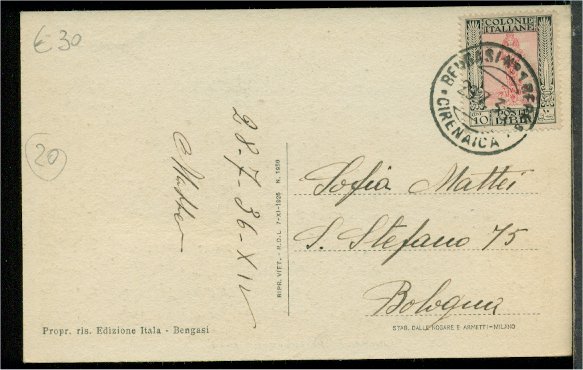 € 30
COLONIE
ITALIANE
10
POSTE
BENGASI
CIRENAICA
20
28-7-36-XIV
Sofia Mattei
S. Stefano 75
Bologna
RIPR. VIET. - R.D.L. 7-XI-1925 N. 1950
Propr. ris. Edizione Itala - Bengasi
STAB. DALLE NOGARE E ARMETTI - MILANO